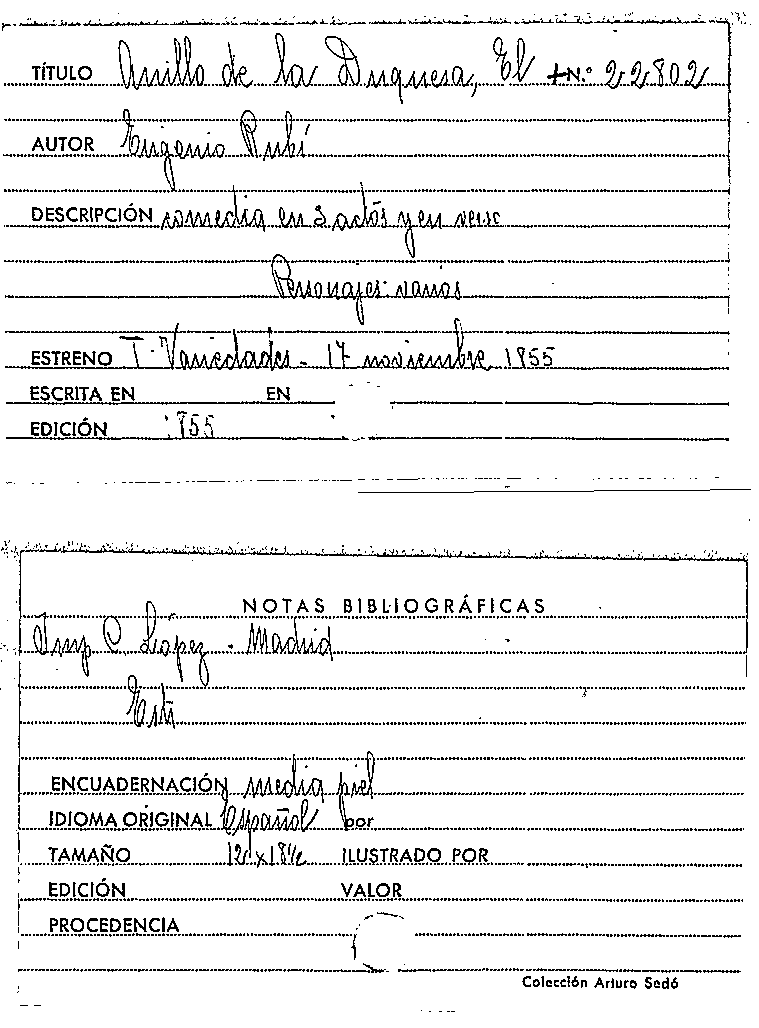 TÍTULO Anillo de la Duquesa, El +N.º 22802
AUTOR Eugenio Rubí
DESCRIPCIÓN comedia en 3 actos y en verso
Personajes: varios
ESTRENO T. Variedades - 17 noviembre 1855
ESCRITA EN EN
EDICIÓN 1855
NOTAS BIBLIOGRÁFICAS
Imp C. López - Madrid
ENCUADERNACIÓN media piel
IDIOMA ORIGINAL Español por
TAMAÑO 12 x 18½ ILUSTRADO POR
EDICIÓN VALOR
PROCEDENCIA
Colección Arturo Sedó